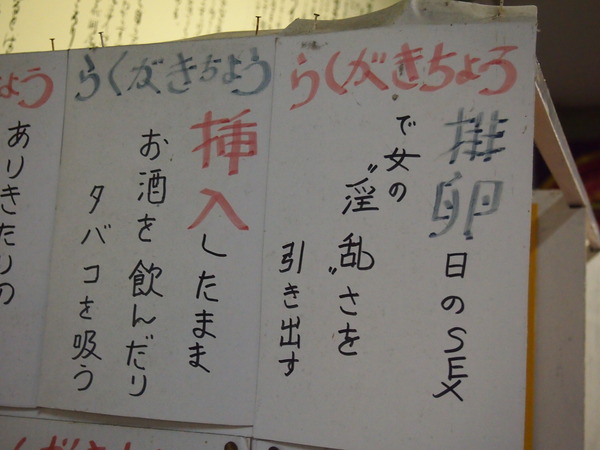 らくがきちょろ
排卵日のSEX
で女の
〝淫乱〟さを
引き出す
らくがきちょう
挿入したまま
お酒を飲んだり
タバコを吸う
ょう
ありきたりの